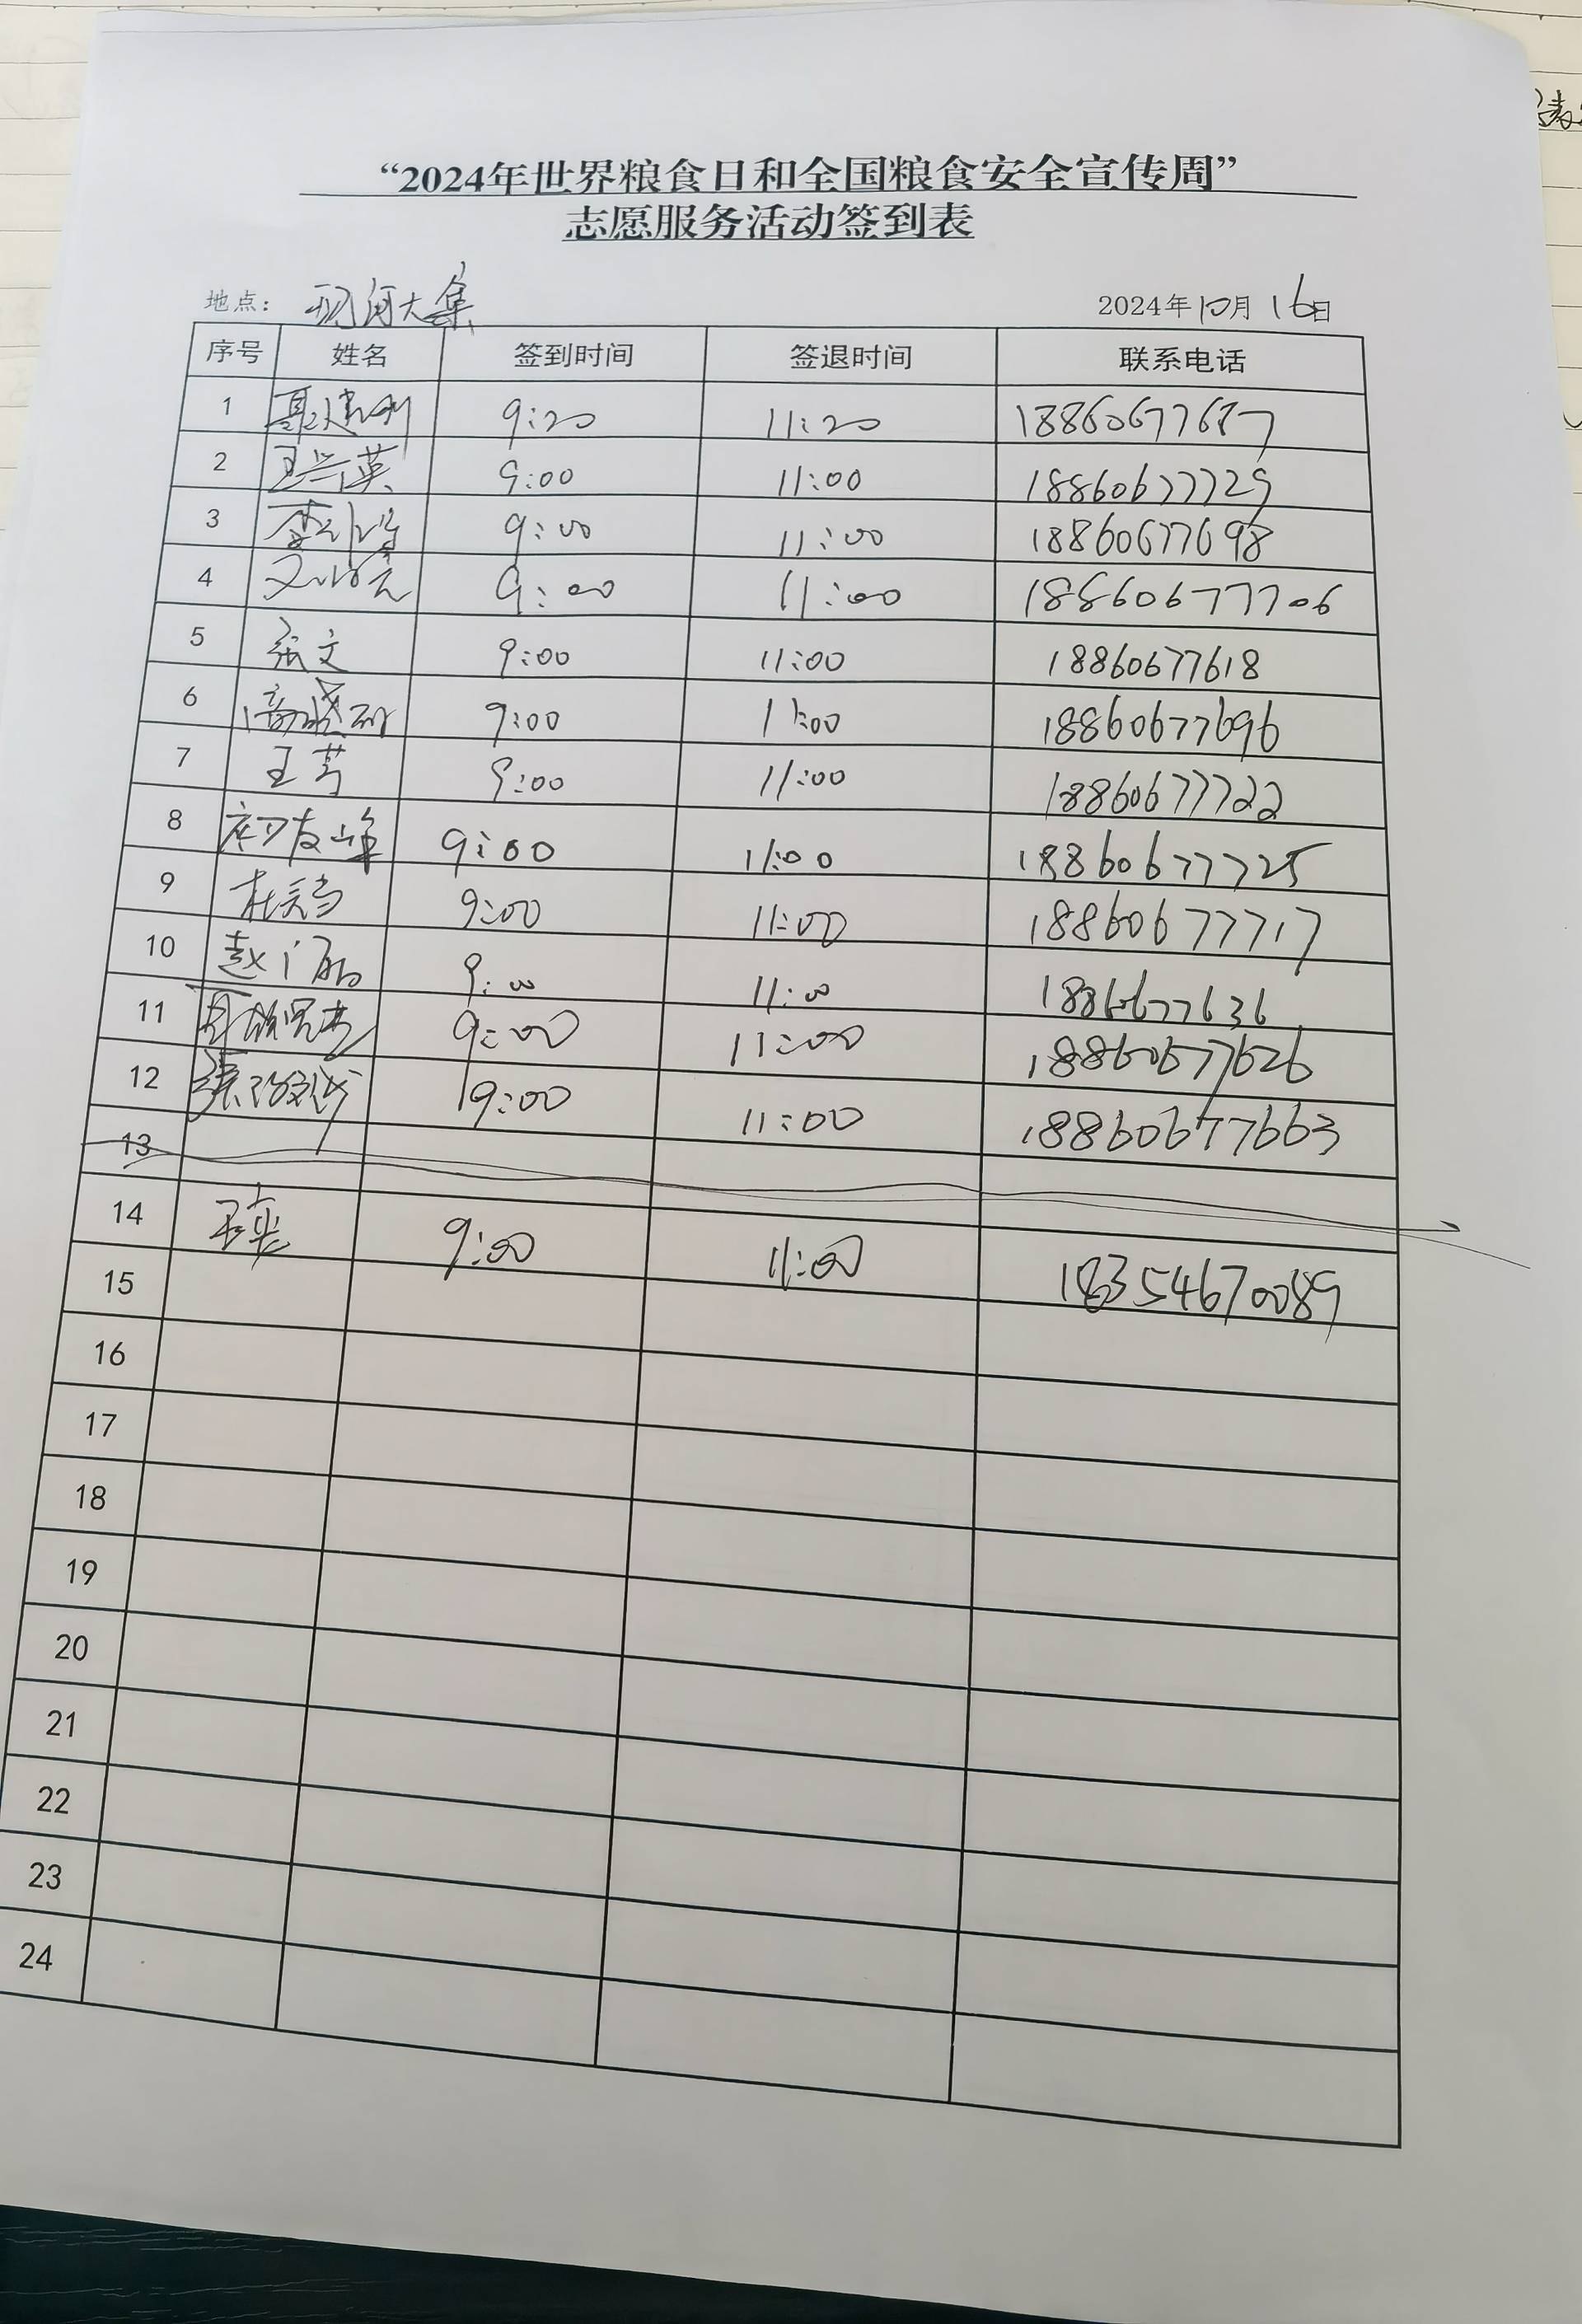 “2024年世界粮食日和全国粮食安全宣传周”
志愿服务活动签到表
地点： 现河大集 2024年10月16日
序号 姓名 签到时间 签退时间 联系电话
1 9:20 11:20
2 王兰英 9:00 11:00 18860677729
3 9:00 11:00 18860677698
4 9:00 11:00 18860677706
5 张文 9:00 11:00 18860677618
6 9:00 11:00 18860677696
7 王芳 9:00 11:00 18860677722
8 初友峰 9:00 11:00 18860677725
9 9:00 11:00 18860677717
10 赵 9:00 11:00 18860677636
11 9:00 11:00 18860677626
12 张 9:00 11:00 18860677663
13
14 9:00 11:00 18354670089
15
16
17
18
19
20
21
22
23
24